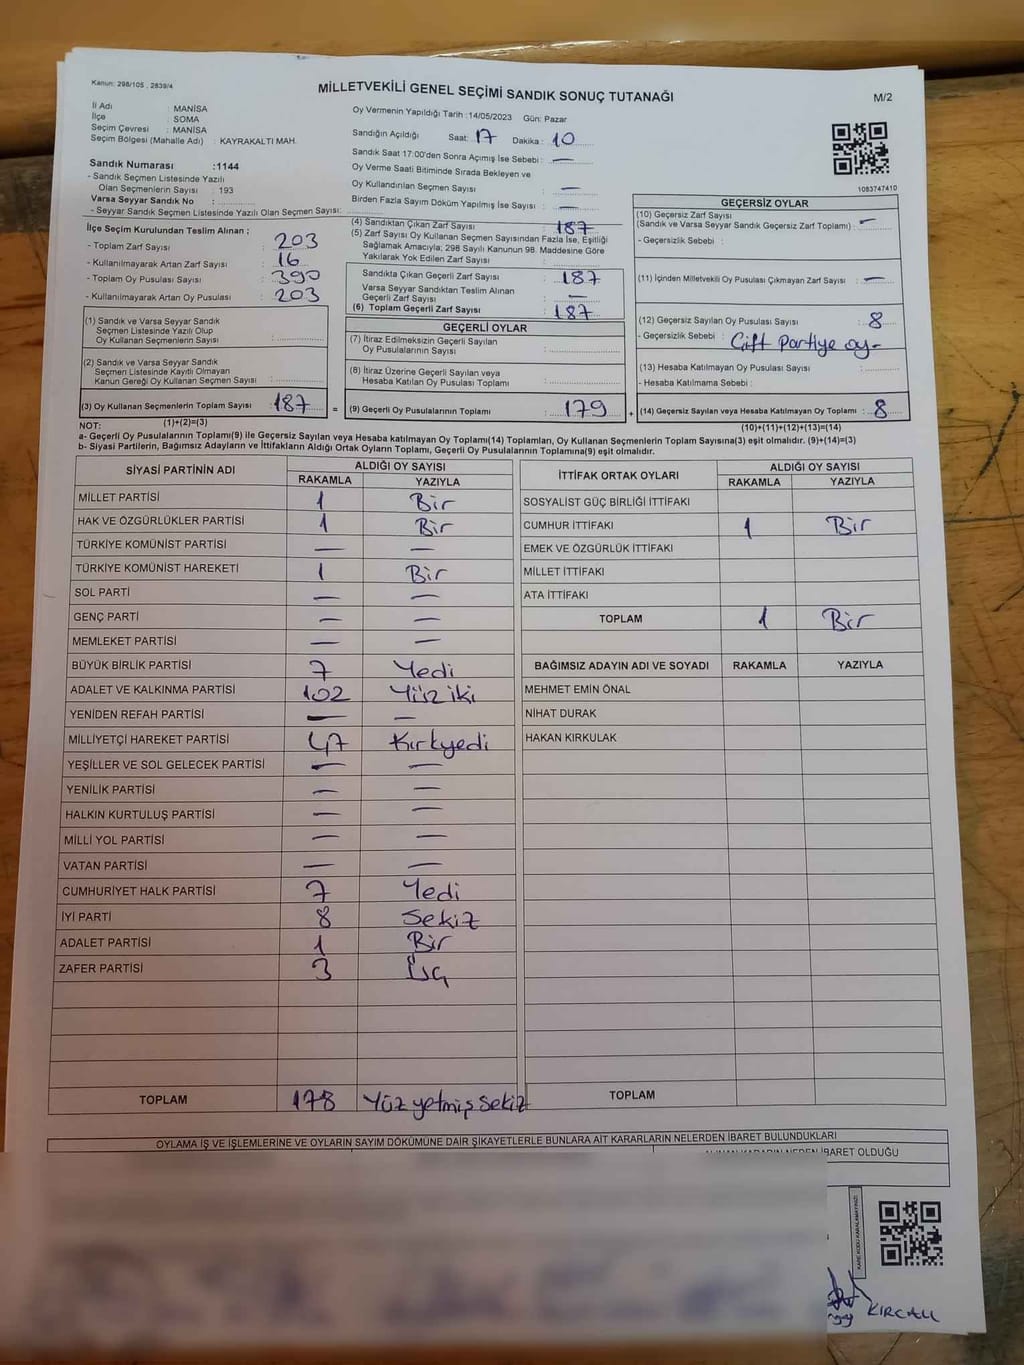 Kanun: 298/105 , 2839/4
MİLLETVEKİLİ GENEL SEÇİMİ SANDIK SONUÇ TUTANAĞI
M/2
İl Adı : MANİSA
İlçe : SOMA
Seçim Çevresi : MANİSA
Seçim Bölgesi (Mahalle Adı) : KAYRAKALTI MAH.
Oy Vermenin Yapıldığı Tarih :14/05/2023 Gün: Pazar
Sandığın Açıldığı Saat: 17 Dakika: 10
Sandık Saat 17:00'den Sonra Açımış İse Sebebi : —
Oy Verme Saati Bitiminde Sırada Bekleyen ve
Oy Kullandırılan Seçmen Sayısı : —
Birden Fazla Sayım Döküm Yapılmış İse Sayısı : —
1083747410
Sandık Numarası :1144
- Sandık Seçmen Listesinde Yazılı
Olan Seçmenlerin Sayısı : 193
Varsa Seyyar Sandık No :
- Seyyar Sandık Seçmen Listesinde Yazılı Olan Seçmen Sayısı:
İlçe Seçim Kurulundan Teslim Alınan ;
- Toplam Zarf Sayısı : 203
- Kullanılmayarak Artan Zarf Sayısı : 16
- Toplam Oy Pusulası Sayısı : 390
- Kullanılmayarak Artan Oy Pusulası : 203
(1) Sandık ve Varsa Seyyar Sandık
Seçmen Listesinde Yazılı Olup
Oy Kullanan Seçmenlerin Sayısı :
(2) Sandık ve Varsa Seyyar Sandık
Seçmen Listesinde Kayıtlı Olmayan
Kanun Gereği Oy Kullanan Seçmen Sayısı :
(3) Oy Kullanan Seçmenlerin Toplam Sayısı : 187 =
(1)+(2)=(3)
(4) Sandıktan Çıkan Zarf Sayısı : 187
(5) Zarf Sayısı Oy Kullanan Seçmen Sayısından Fazla İse, Eşitliği
Sağlamak Amacıyla; 298 Sayılı Kanunun 98. Maddesine Göre
Yakılarak Yok Edilen Zarf Sayısı :
Sandıkta Çıkan Geçerli Zarf Sayısı : 187
Varsa Seyyar Sandıktan Teslim Alınan
Geçerli Zarf Sayısı : —
(6) Toplam Geçerli Zarf Sayısı : 187
GEÇERLİ OYLAR
(7) İtiraz Edilmeksizin Geçerli Sayılan
Oy Pusulalarının Sayısı :
(8) İtiraz Üzerine Geçerli Sayılan veya
Hesaba Katılan Oy Pusulası Toplamı :
(9) Geçerli Oy Pusulalarının Toplamı : 179 +
GEÇERSİZ OYLAR
(10) Geçersiz Zarf Sayısı
(Sandık ve Varsa Seyyar Sandık Geçersiz Zarf Toplamı) : —
- Geçersizlik Sebebi :
(11) İçinden Milletvekili Oy Pusulası Çıkmayan Zarf Sayısı : —
(12) Geçersiz Sayılan Oy Pusulası Sayısı : 8
- Geçersizlik Sebebi : Çift Partiye oy-
(13) Hesaba Katılmayan Oy Pusulası Sayısı :
- Hesaba Katılmama Sebebi :
(14) Geçersiz Sayılan veya Hesaba Katılmayan Oy Toplamı : 8
(10)+(11)+(12)+(13)=(14)
NOT:
a- Geçerli Oy Pusulalarının Toplamı(9) ile Geçersiz Sayılan veya Hesaba katılmayan Oy Toplamı(14) Toplamları, Oy Kullanan Seçmenlerin Toplam Sayısına(3) eşit olmalıdır. (9)+(14)=(3)
b- Siyasi Partilerin, Bağımsız Adayların ve İttifakların Aldığı Ortak Oyların Toplamı, Geçerli Oy Pusulalarının Toplamına(9) eşit olmalıdır.
SİYASİ PARTİNİN ADI ALDIĞI OY SAYISI
RAKAMLA YAZIYLA
MİLLET PARTİSİ 1 Bir
HAK VE ÖZGÜRLÜKLER PARTİSİ 1 Bir
TÜRKİYE KOMÜNİST PARTİSİ — —
TÜRKİYE KOMÜNİST HAREKETİ 1 Bir
SOL PARTİ — —
GENÇ PARTİ — —
MEMLEKET PARTİSİ — —
BÜYÜK BİRLİK PARTİSİ 7 Yedi
ADALET VE KALKINMA PARTİSİ 102 Yüziki
YENİDEN REFAH PARTİSİ — —
MİLLİYETÇİ HAREKET PARTİSİ 47 Kırkyedi
YEŞİLLER VE SOL GELECEK PARTİSİ — —
YENİLİK PARTİSİ — —
HALKIN KURTULUŞ PARTİSİ — —
MİLLİ YOL PARTİSİ — —
VATAN PARTİSİ — —
CUMHURİYET HALK PARTİSİ 7 Yedi
İYİ PARTİ 8 Sekiz
ADALET PARTİSİ 1 Bir
ZAFER PARTİSİ 3 Üç
TOPLAM 178 Yüz yetmiş sekiz
İTTİFAK ORTAK OYLARI ALDIĞI OY SAYISI
RAKAMLA YAZIYLA
SOSYALİST GÜÇ BİRLİĞİ İTTİFAKI
CUMHUR İTTİFAKI 1 Bir
EMEK VE ÖZGÜRLÜK İTTİFAKI
MİLLET İTTİFAKI
ATA İTTİFAKI
TOPLAM 1 Bir
BAĞIMSIZ ADAYIN ADI VE SOYADI RAKAMLA YAZIYLA
MEHMET EMİN ÖNAL
NİHAT DURAK
HAKAN KIRKULAK
TOPLAM
OYLAMA İŞ VE İŞLEMLERİNE VE OYLARIN SAYIM DÖKÜMÜNE DAİR ŞİKAYETLERLE BUNLARA AİT KARARLARIN NELERDEN İBARET BULUNDUKLARI
ALINAN KARARIN NEDEN İBARET OLDUĞU
KARE KODU KARALAMAYINIZ!
KIRCALI